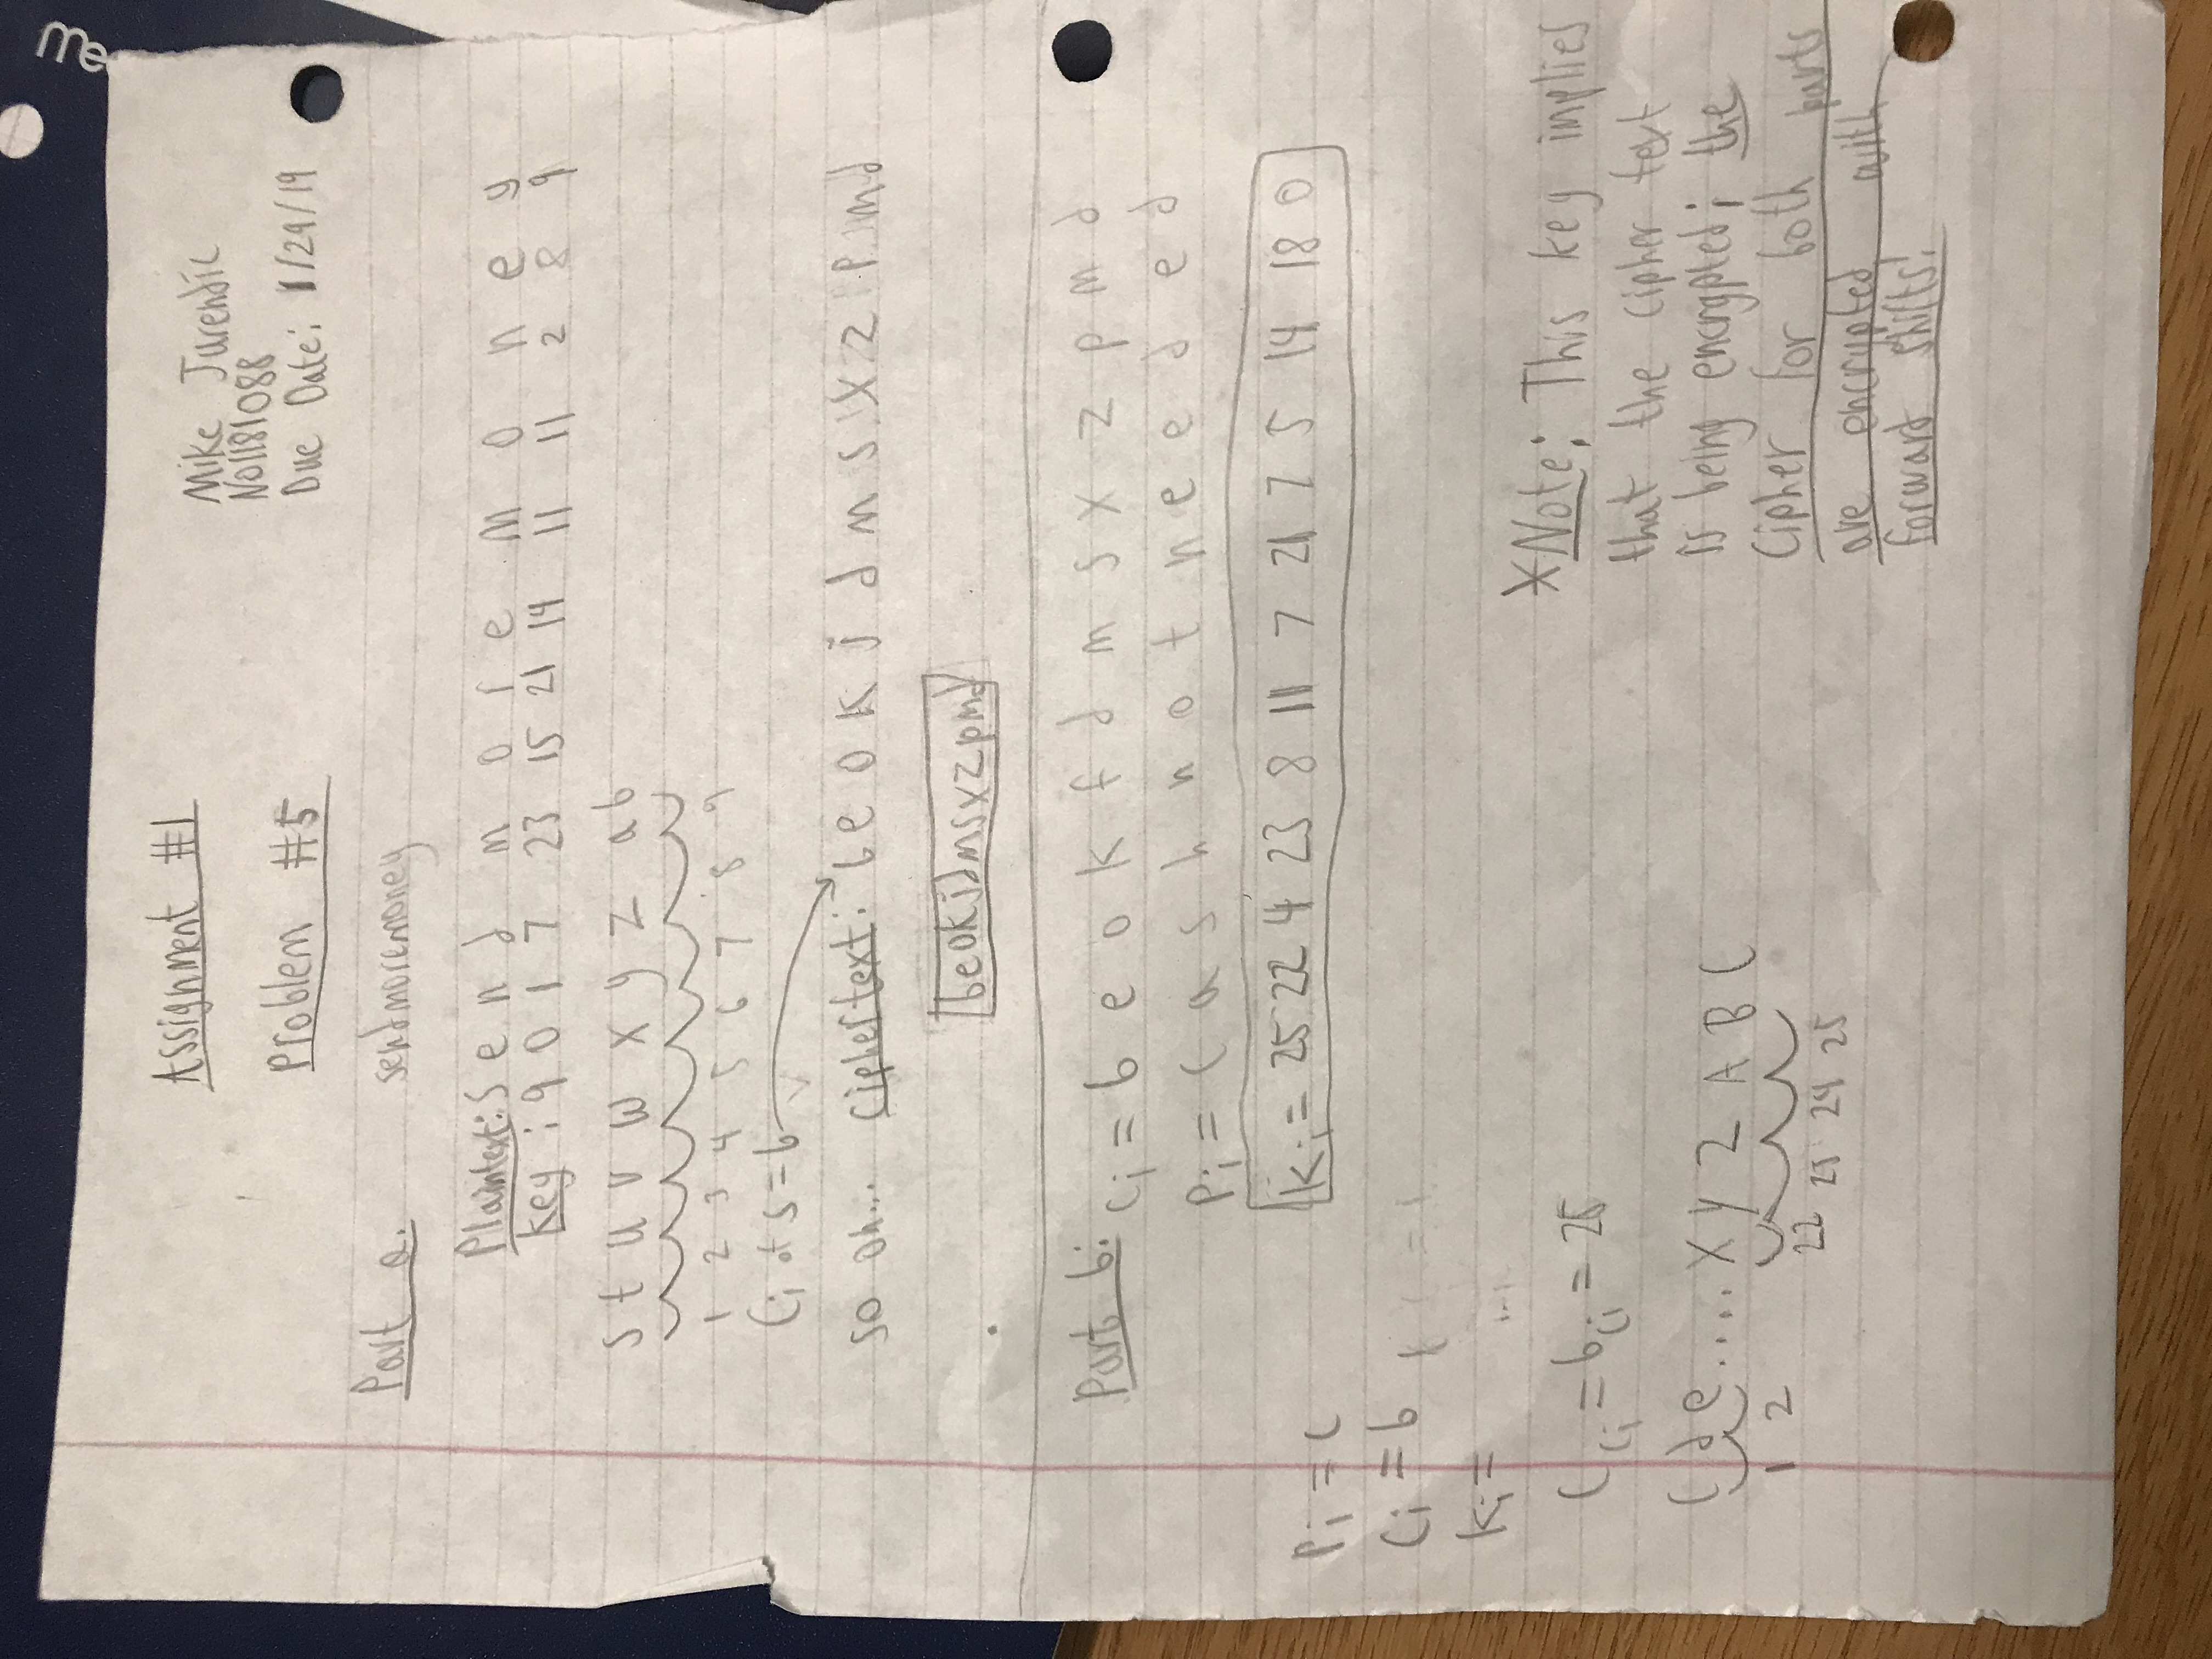 me
Assignment #1
Mike Jurendic
N01181088
Problem #5
Due Date: 1/29/19
Part a. sendmoremoney
Plaintext: s e n d m o r e m o n e y
Key : 9 0 1 7 23 15 21 14 11 11 2 8 9
s t u v w x y z a b
1 2 3 4 5 6 7 8 9
Ci of s = b
so on... Ciphertext: b e o k j d m s x z p m d
beokjdmsxzpmd
Part b: Ci = b e o k f d m s x z p m d
Pi = c a s h n o t n e e d e d
Ki = 25 22 4 23 8 11 7 21 7 5 14 18 0
Pi = c
Ci = b
Ki =
C Ci = b Ci = 25
C d e .... X y Z A B C
1 2 22 23 24 25
*Note: This key implies
that the cipher text
is being encrypted; the
Cipher for both parts
are encrypted with
forward shifts!